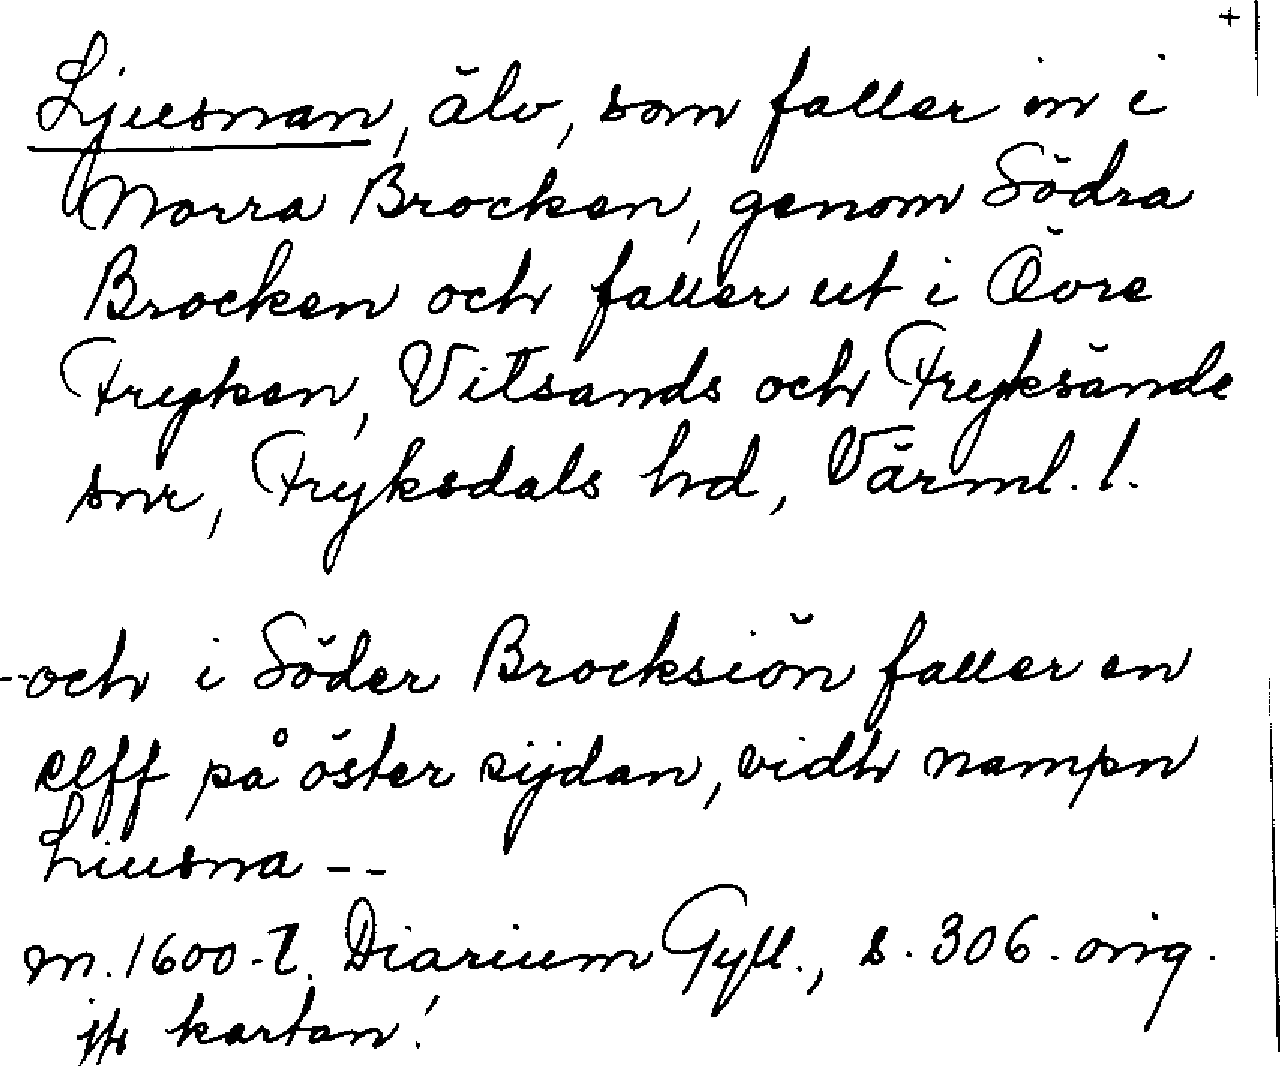 +
Ljusnan, älv, som faller in i
Norra Brocken, genom Södra
Brocken och faller ut i Övre
Fryken, Vitsands och Fryksände
snr, Fryksdals hd, Värml. l.
-- och i Söder Brocksiön faller en
elff på öster sijdan, vidh nampn
Liusna --
m. 1600-t. Diarium Gyll., s. 306. orig.
jfr kartan!